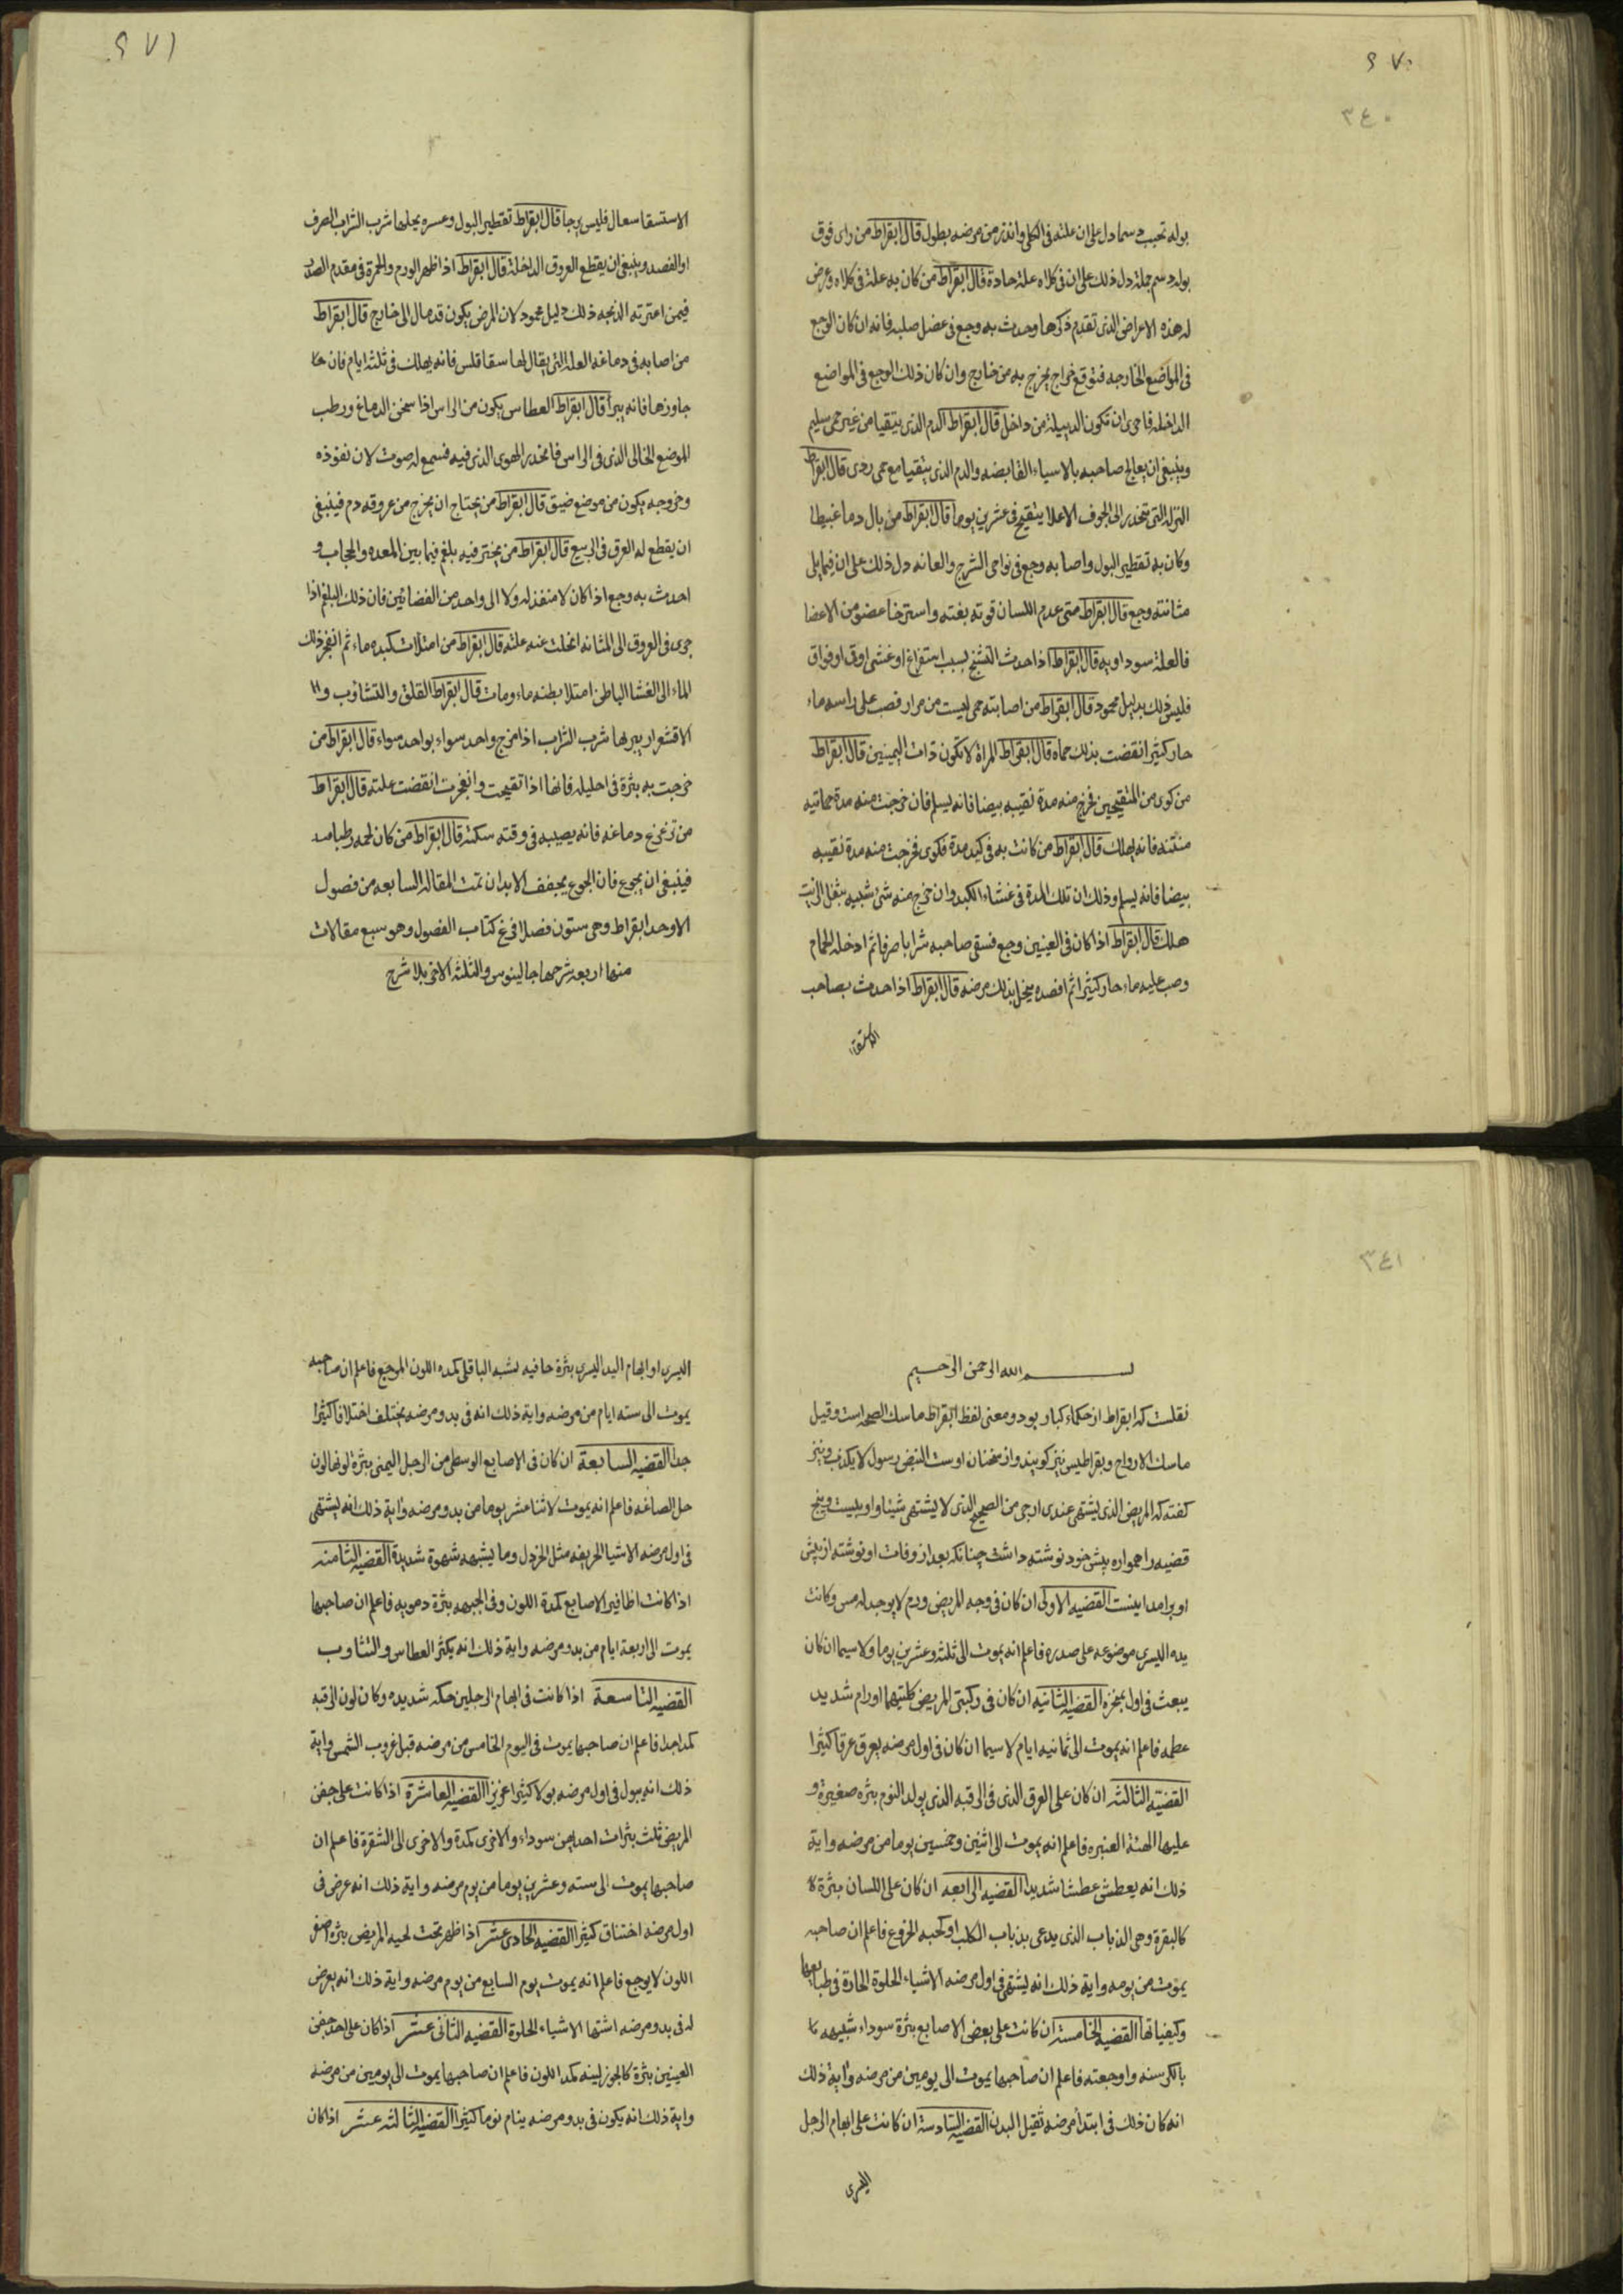 ٤٧٠
٣٤٠
بوله تحبب دسما دل على ان علته فى الكلى وانذر من مرضه بطول قال ابقراط من راى فوق
بوله دسم جملة دل ذلك على ان فى كلاه علة حادة قال ابقراط من كان به علة فى كلاه وعرض
له هذه الاعراض الذى تقدم ذكرها وحدث به وجع فى عضل صلبه فانه ان كان الوجع
فى المواضع الخارجه فتوقع خراج يخرج به من خارج وان كان ذلك الوجع فى المواضع
الداخله فاحرى ان تكون الدبيلة من داخل قال ابقراط الدم الذى يتقيا من غير حمى سليم
وينبغى ان يعالج صاحبه بالاسياء القابضه والدم الذى يتقيا مع حمى ردى قال ابقراط
النزله التى تنحدر الى الجوف الاعلا يتقيح فى عشرين يوما قال ابقراط من بال دما غبيطا
وكان به تقطير البول واصابه وجع فى نواحى الشرج والعانه دل ذلك على ان فيما يلى
مثانته وجع قال ابقراط متى عدم اللسان قوته بغته واسترخا عضو من الاعضا
فالعلة سوداويه قال ابقراط اذا حدث التشنج بسبب استفراغ او غشى اوقى او فواق
فليس ذلك بدليل محمود قال ابقراط من اصابته حمى ليست من مرار فصب على راسه ماء
حار كثير انقضت بذلك حماه قال ابقراط المراة لا تكون ذات اليمينين قال ابقراط
من كوى من المتقيحين فخرج منه مدة نقيه بيضا فانه يسلم فان خرجت منه مدة حمائيه
منتنه فانه يهلك قال ابقراط من كانت به فى كبده مدة فكوى فخرجت منه مدة نقيه
بيضا فانه يسلم وذلك ان تلك المدة فى غشاء الكبد وان خرج منه شى شبيه بثفل الزيت
هلك قال ابقراط اذا كان فى العينين وجع فسقى صاحبه شرابا صرفا ثم ادخله الحمام
وصب عليه ماء حار كثيرا ثم افصده ينحل بذلك مرضه قال ابقراط اذا حدث بصاحب
الاستسقا
٤٧١
الاستسقا سعال فليس يرجا قال ابقراط تقطير البول وعسره يحلها شرب الشراب الصرف
او الفصد وينبغى ان يقطع العروق الداخلة قال ابقراط اذا ظهر الورم والحمرة فى مقدم الصدر
فيمن اعترته الذبحه ذلك دليل محمود لان المرض يكون قد مال الى خارج قال ابقراط
من اصابه فى دماغه العلة التى يقال لها سقاقلس فانه يهلك فى ثلثة ايام فان
جاوزها فانه يبرأ قال ابقراط العطاس يكون من الراس اذا سخن الدماغ ورطب
الموضع الخالى الذى فى الراس فانحدر الهوى الذى فيه فسمع له صوت لان نفوذه
وخروجه يكون من موضع ضيق قال ابقراط من يحتاج ان يخرج من عروقه دم فينبغى
ان يقطع له العرق فى الربيع قال ابقراط من يختر فيه بلغم فيما بين المعده والحجاب و
احدث به وجع اذا كان لا منفذ له ولا الى واحد من الفضائين فان ذلك البلغم اذا
جرى فى العروق الى المثانه انحلت عنه علته قال ابقراط من امتلات كبده ماء ثم انفجر ذلك
الماء الى الغشا الباطن امتلا بطنه ماء ومات قال ابقراط القلق والتشاؤب و
الاقشعرار يبريها شرب الشراب اذا مزج واحد سواء بواحد سواء قال ابقراط من
خرجت به بثرة فى احليله فانها اذا تقيحت وانفجرت انقضت علته قال ابقراط
من تزعزع دماغه فانه يصيبه فى وقته سكته قال ابقراط من كان لحمه رطبا
فينبغى ان يجوع فان الجوع يجفف الابدان تمت المقالة السابعه من فصول
الاوحد ابقراط وهى ستون فصلا فرغ كتاب الفصول وهو سبع مقالات
منها اربعه شرحها جالينوس والثلثه الاخر بلا شرح
٣٤١
بسم الله الرحمن الرحيم
نقلست كه ابقراط از حكماء كبار بود ومعنى لفظ ابقراط ماسك الصحه است وقيل
ماسك الارواح وبقراطيس نيز كويند واز سخنان اوست النبض رسول لا يكذب ونيز
كفته كه المريض الذى يشتهى عندى ارجى من الصحيح الذى لا يشتهى شيئا واو بيست وپنج
قضيه را همواره پيش خود نوشته داشت چنانكه بعد از وفات او نوشته از پيش
او برامد اينست القضيه الاولى ان كان فى وجه المريض ورم لا يوجد له مس وكانت
يده اليسرى موضوعه على صدره فاعلم انه يموت الى ثلثه وعشرين يوما ولا سيما ان كان
يبعث فى اول بمنخره القضيه الثانيه ان كان فى ركبتى المريض كلتيهما اورام شديد
عظمه فاعلم انه يموت الى ثمانيه ايام لا سيما ان كان فى اول مرضه يعرق عرقا كثيرا
القضيه الثالثه ان كان على العرق الذى فى الرقبه الذى يولد النوم بثره صغيرة و
عليها الهنة العنبره فاعلم انه يموت الى اثنين وخمسين يوما من مرضه واية
ذلك انه يعطش عطشا شديدا القضيه الرابعه ان كان على اللسان بثرة
كالبقرة وهى الذباب الذى يدعى بذباب الكلب او كحبه الخروع فاعلم ان صاحبه
يموت من يومه واية ذلك انه يشتهى فى اول مرضه الاشياء الحلوة الحارة فى طبايعها
وكيفياتها القضيه الخامسة ان كانت على بعض الاصابع بثرة سوداء شبيهه
بالكرسنه واوجعته فاعلم ان صاحبها يموت الى يومين من مرضه واية ذلك
انه كان ذلك فى ابتدأ مرضه ثقيل البدن القضيه السادسة ان كانت على ابهام الرجل
اليسرى
اليسرى او ابهام اليد اليسرى بثرة جافيه تشبه الباقلى كمده اللون الموجع فاعلم ان صاحبه
يموت الى سته ايام من مرضه واية ذلك انه فى بدو مرضه يختلف اختلافا كثيرا
جدا القضيه السابعة ان كان فى الاصابع الوسطى من الرجل اليمنى بثرة لونها لون
حل الصاغه فاعلم انه يموت لاثنا عشر يوما من بدو مرضه واية ذلك انه يشتهى
فى اول مرضه الاشيا الحريفه مثل الخردل وما يشبهه شهوة شديدة القضيه الثامنه
اذا كانت اظافير الاصابع كمدة اللون وفى الجبهه بثرة دمويه فاعلم ان صاحبها
يموت الى اربعة ايام من بدو مرضه واية ذلك انه يكثر العطاس والتثاوب
القضيه التاسعة اذا كانت فى ابهام الرجلين حكه شديده وكان لون الرقبه
كمدا جدا فاعلم ان صاحبها يموت فى اليوم الخامس من مرضه قبل غروب الشمس واية
ذلك انه يبول فى اول مرضه بولا كثيرا غزيرا القضيه العاشرة اذا كانت على جفن
المريض ثلث بثرات احديهن سوداء والاخرى كمدة والاخرى الى الشقرة فاعلم ان
صاحبها يموت الى سته وعشرين يوما من يوم مرضه واية ذلك انه عرض فى
اول مرضه اختناق كثيرا القضيه الحادى عشر اذا ظهر تحت لحيه المريض بثره اصفر
اللون لا يوجع فاعلم انه يموت يوم السابع من يوم مرضه واية ذلك انه يعرض
له فى بدو مرضه اشتها الاشياء الحلوة القضيه الثانى عشر اذا كان على احد جفن
العينين بثرة كالجوز لينه كمد اللون فاعلم ان صاحبها يموت الى يومين من مرضه
واية ذلك انه يكون فى بدو مرضه ينام نوما كثيرا القضيه الثالثه عشر اذا كان